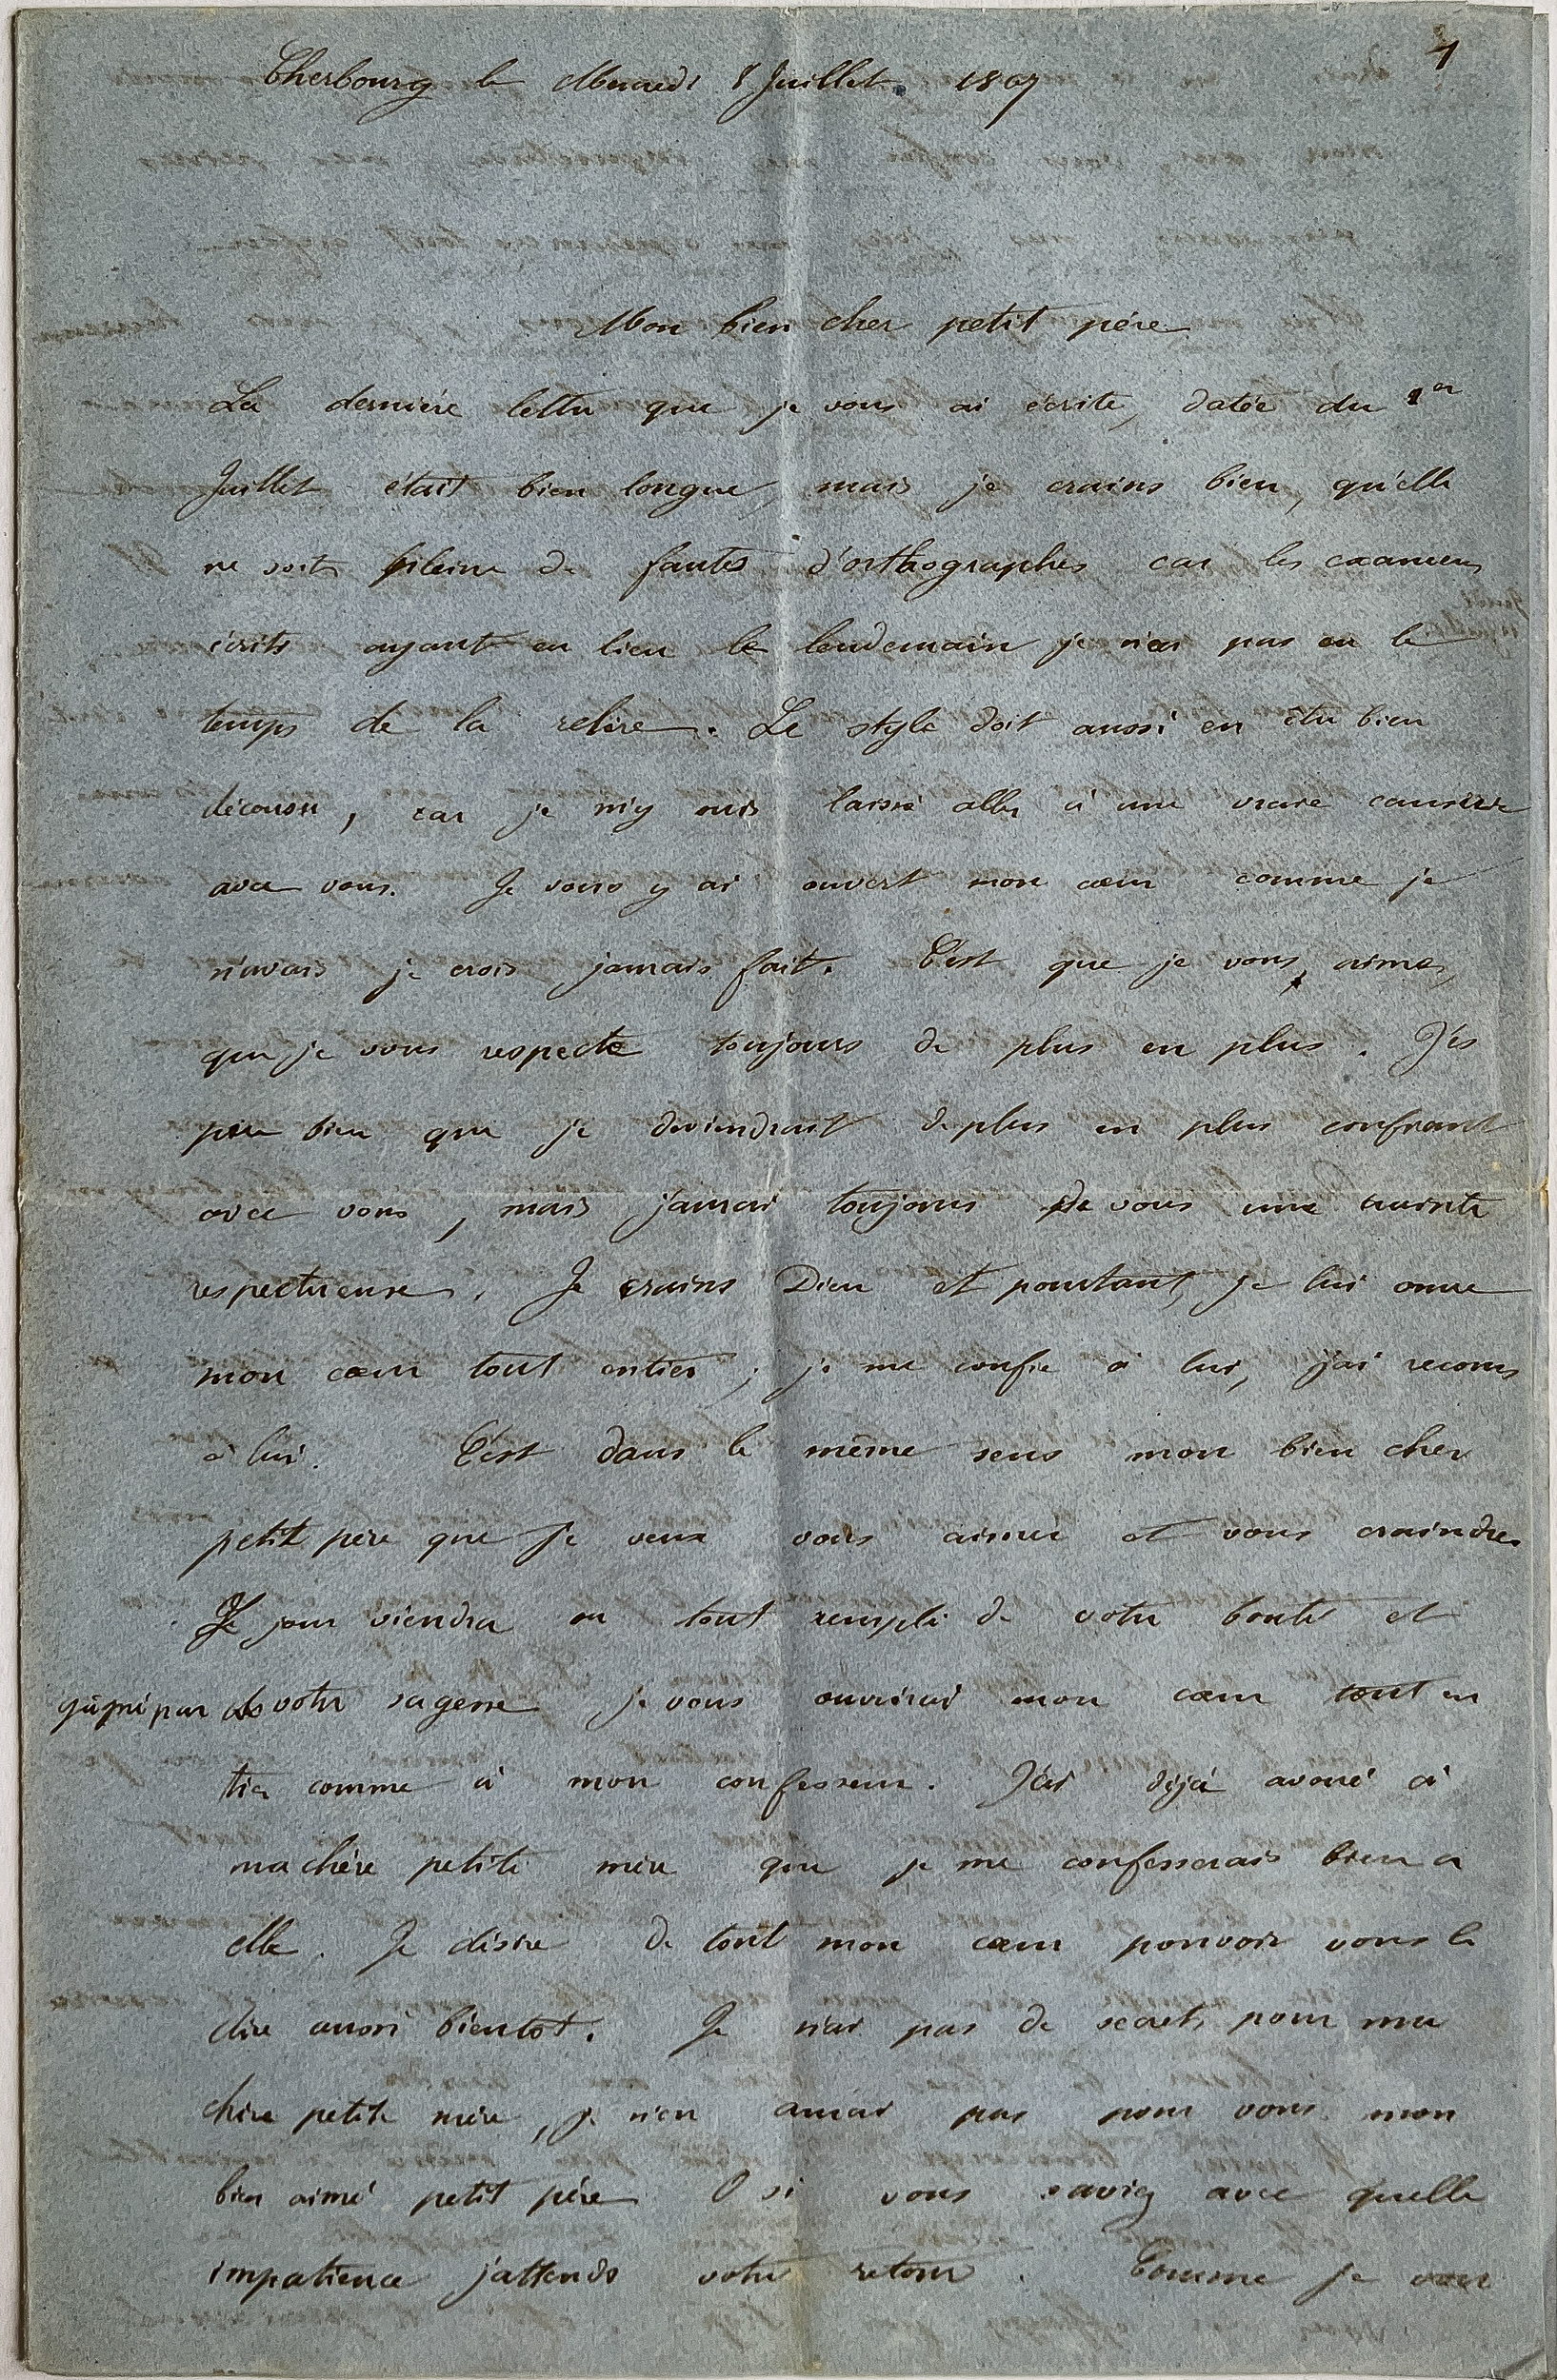 4
Cherbourg le Mercredi 8 Juillet. 1807
Mon bien cher petit père
La dernière lettre que je vous ai écrite, datée du 1er
Juillet était bien longue, mais je crains bien, qu'elle
ne soit pleine de fautes d'orthographes car les examens
écrits ayant eu lieu le lendemain je n'ai pas eu le
temps de la relire. Le style doit aussi en être bien
décousu, car je m'y suis laissé aller à une vraie causerie
avec vous. Je vous y ai ouvert mon cœur comme je
n'avais je crois jamais fait. C'est que je vous aime,
que je vous respecte toujours de plus en plus. J'es
père bien que je deviendrait de plus en plus confiant
avec vous, mais j'aurai toujours de vous une crainte
respectueuse. Je crains Dieu et pourtant, je lui ouvre
mon cœur tout entier ; je me confie à lui, j'ai recours
à lui. C'est dans le même sens mon bien cher
petit père que je veux vous aimer et vous craindre.
Le jour viendra ou tout rempli de votre bonté et
par de votre sagesse je vous ouvrirai mon cœur tout en
tier comme à mon confesseur. J'ai déjà avoué à
ma chère petite mère que je me confesserais bien a
elle. Je désire de tout mon cœur pouvoir vous le
dire aussi bientot. Je n'ai pas de secrets pour ma
chère petite mère, je n'en aurai pas pour vous mon
bien aimé petit père O si vous saviez avec quelle
impatience j'attends votre retour. Comme je vou